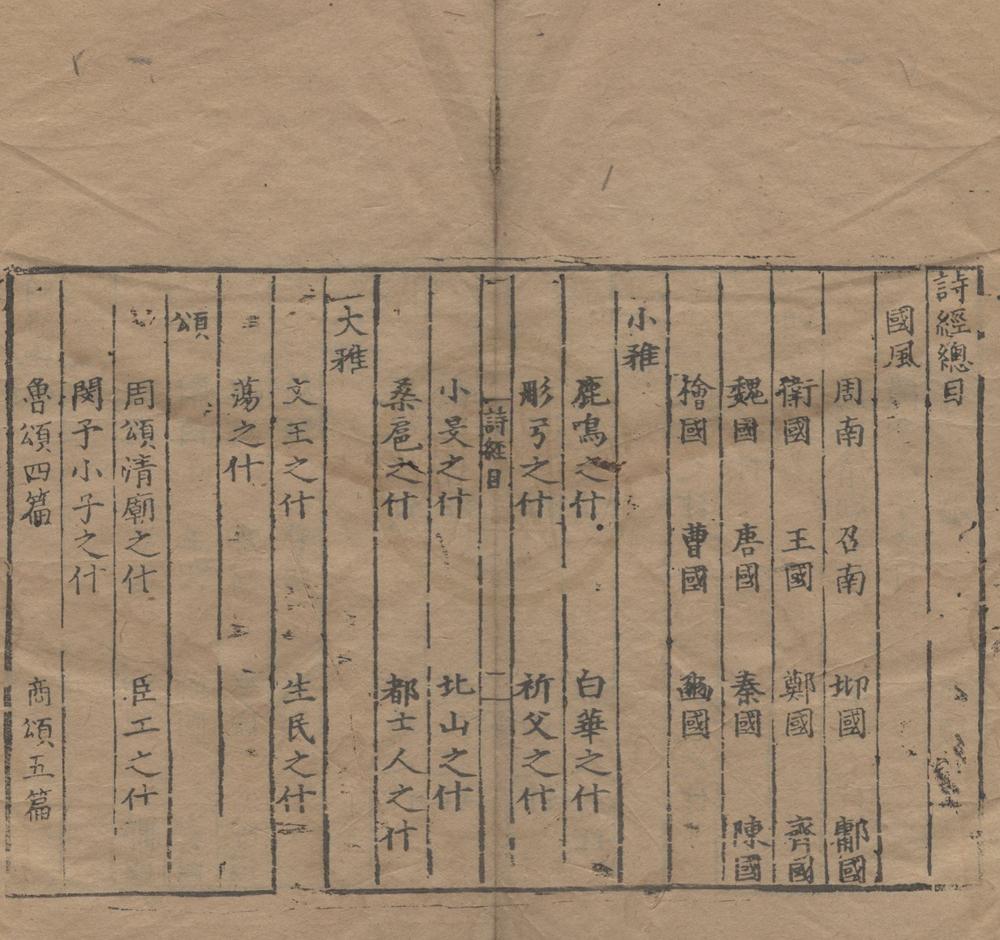 詩經總目
國風
周南 召南 邶國 鄘國
衛國 王國 鄭國 齊國
魏國 唐國 秦國 陳國
檜國 曹國 豳國
小雅
鹿鳴之什 白華之什
彤弓之什 祈父之什
詩經目 一
小旻之什 北山之什
桑扈之什 都士人之什
大雅
文王之什 生民之什
蕩之什
頌
周頌清廟之什 臣工之什
閔予小子之什
魯頌四篇 商頌五篇